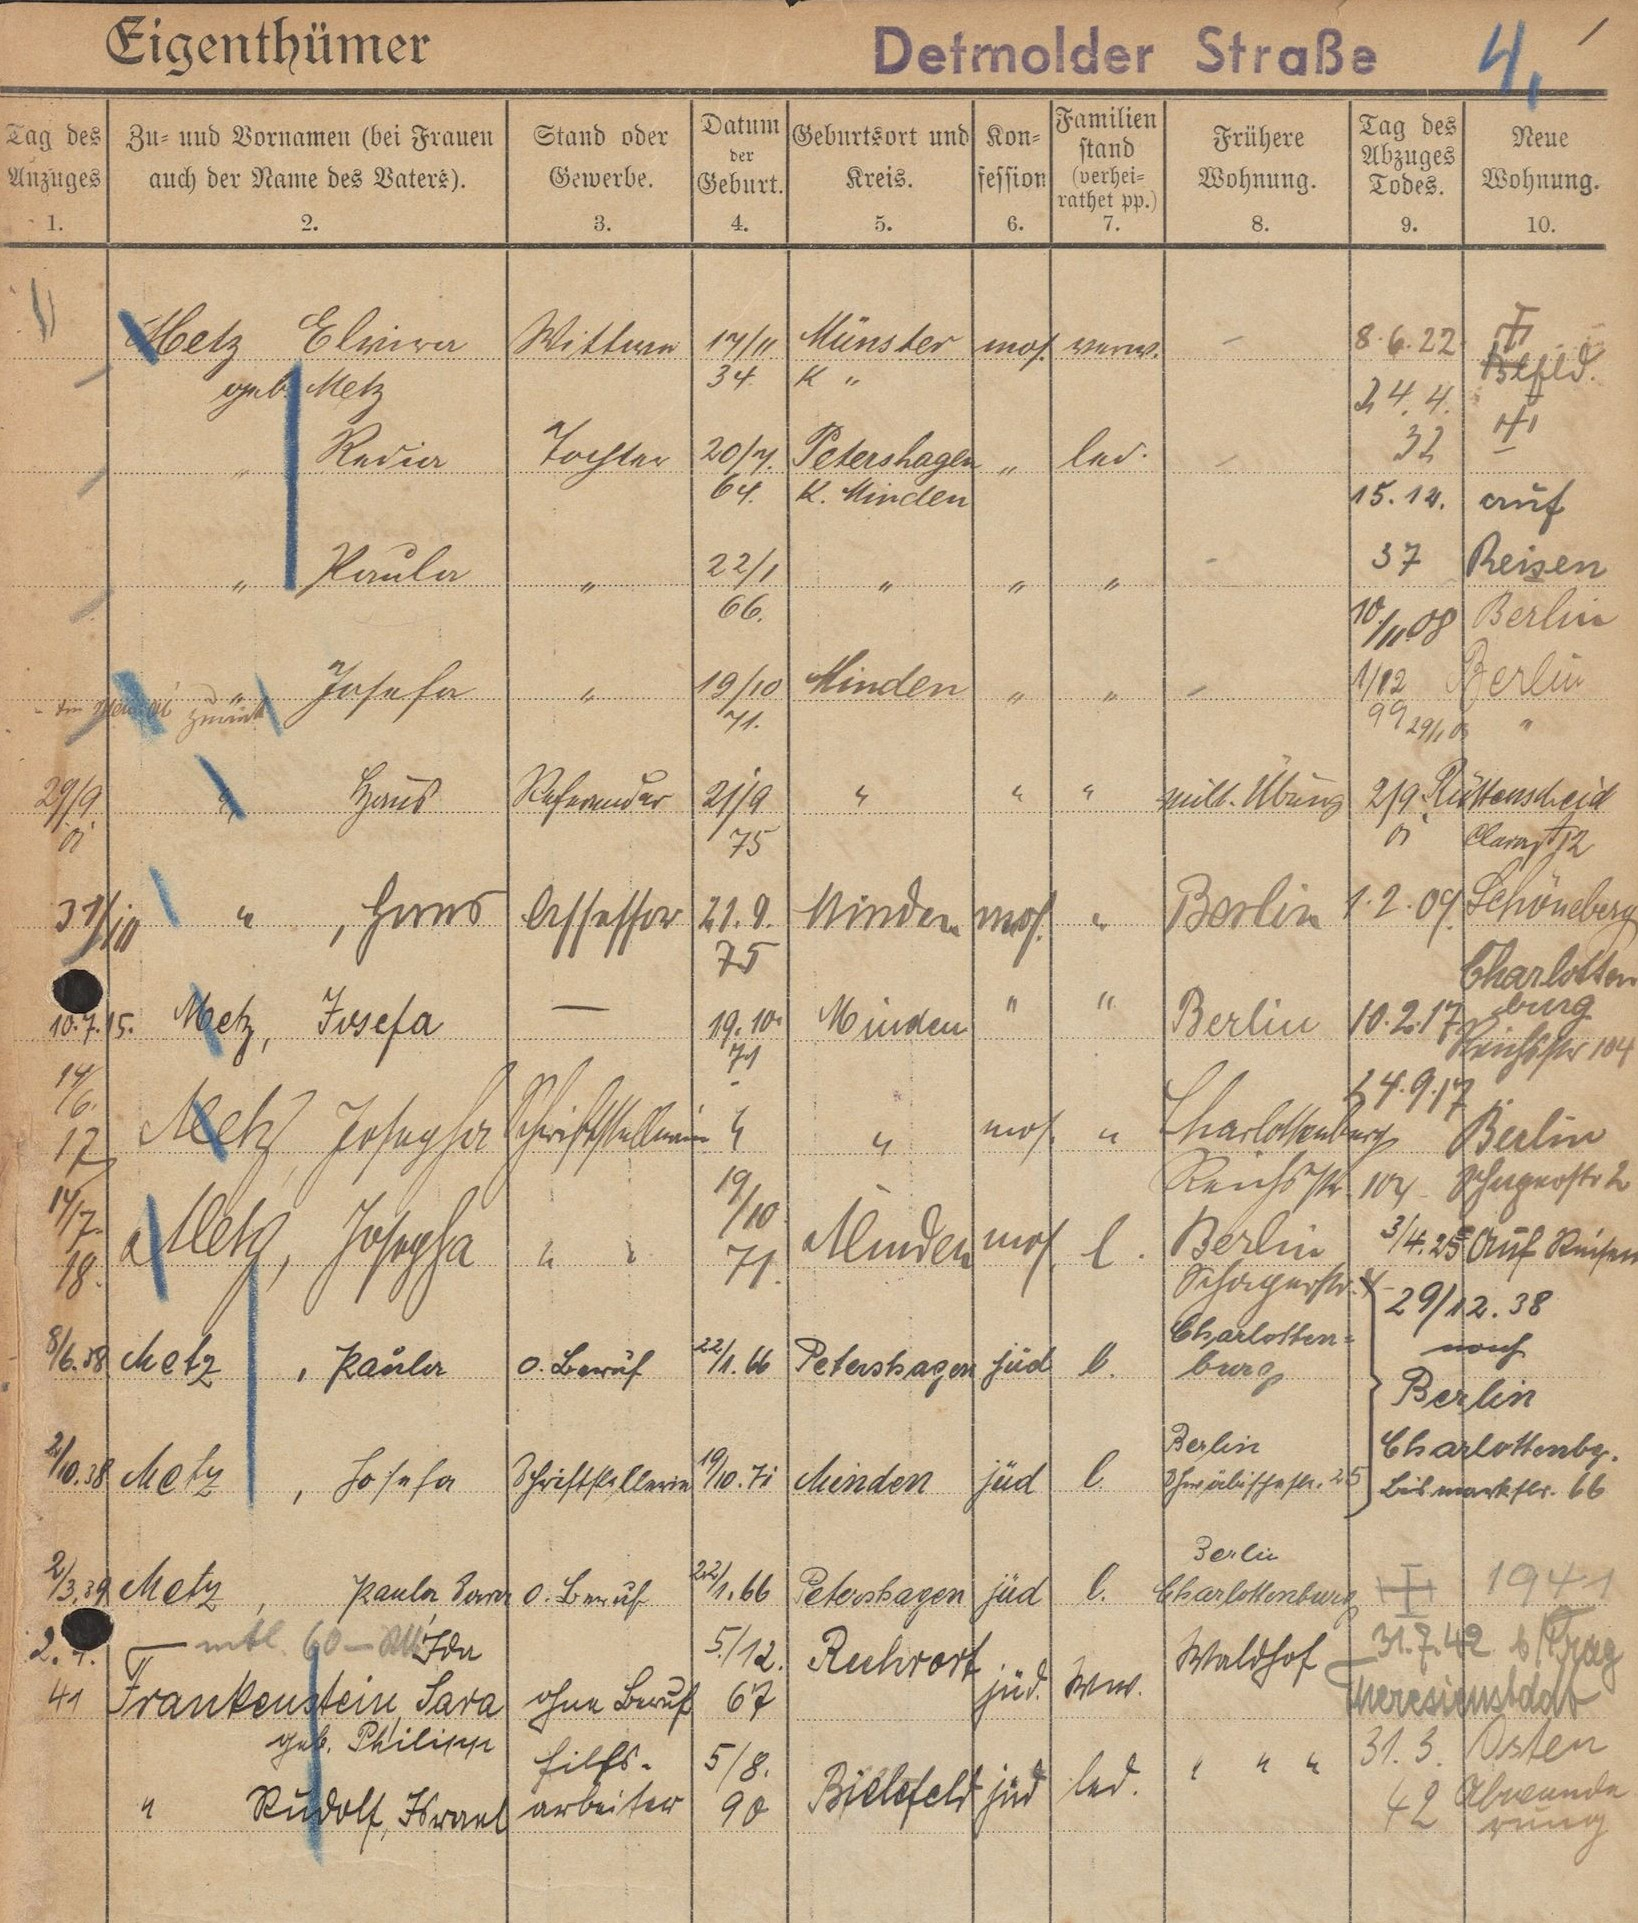 Eigenthümer Detmolder Straße 4,
Tag des Anzuges 1.
Zu- und Vornamen (bei Frauen auch der Name des Vaters). 2.
Stand oder Gewerbe. 3.
Datum der Geburt. 4.
Geburtsort und Kreis. 5.
Kon-fession 6.
Familien stand (verhei-rathet pp.) 7.
Frühere Wohnung. 8.
Tag des Abzuges Todes. 9.
Neue Wohnung. 10.
Metz Elvira Wittwe 17/11 Münster mos. verw. - 8.6.22
geb. Metz 34. K " Blfld.
24.4.
" Tochter 20/7. Petershagen " led. - 32
64. K. Minden 15.12. auf
" Paula " 22/1 " " " - 37 Reisen
66. 10/11.08 Berlin
" Josefa " 19/10 Minden " " - 1/12 Berlin
zurück 71. 99 "
29/9 " Hans Referendar 21/9 " " " milt. Übung 2/9 Rüttenscheid
01 75 01 12
31/10 " , Hans Assessor 21.9. Minden mos. " Berlin 1.2.09. Schöneberg
75
Charlotten
10.7.15. Metz, Josefa — 19.10. Minden " " Berlin 10.2.17 burg
71 Reichsstr 104
14/6. 24.9.17.
17 Metz, Josepha Schriftstellerin " " mos. " Charlottenburg Berlin
Reichsstr. 104
14/7. 18. Metz, Josepha " " 19/10. 71. Minden mos. l. Berlin 3/4.25 Auf Reisen
29/12.38
8/6.38 Metz, Paula o. Beruf 22/1.66 Petershagen jüd l. Charlotten-burg nach
Berlin
2/10.38 Metz, Josefa Schriftstellerin 19/10.71 Minden jüd l. Berlin Charlottenbg.
Schwäbischestr. 25 Bismarkstr. 66
2/3.39 Metz, Paula Sara o. Beruf 22/1.66 Petershagen jüd l. Berlin Charlottenburg 1941
mtl. 60 — RM
2.1. 41 Ida 5./12. Ruhrort Waldhof 31.7.42 Prag
Frankenstein, Sara ohne Beruf 67 jüd. Ww. Theresienstadt
geb. Philipp
Hilfs- 5/8. 31.3. Osten
" Rudolf, Israel arbeiter 90 Bielefeld jüd led. " " " 42 Abwande
rung